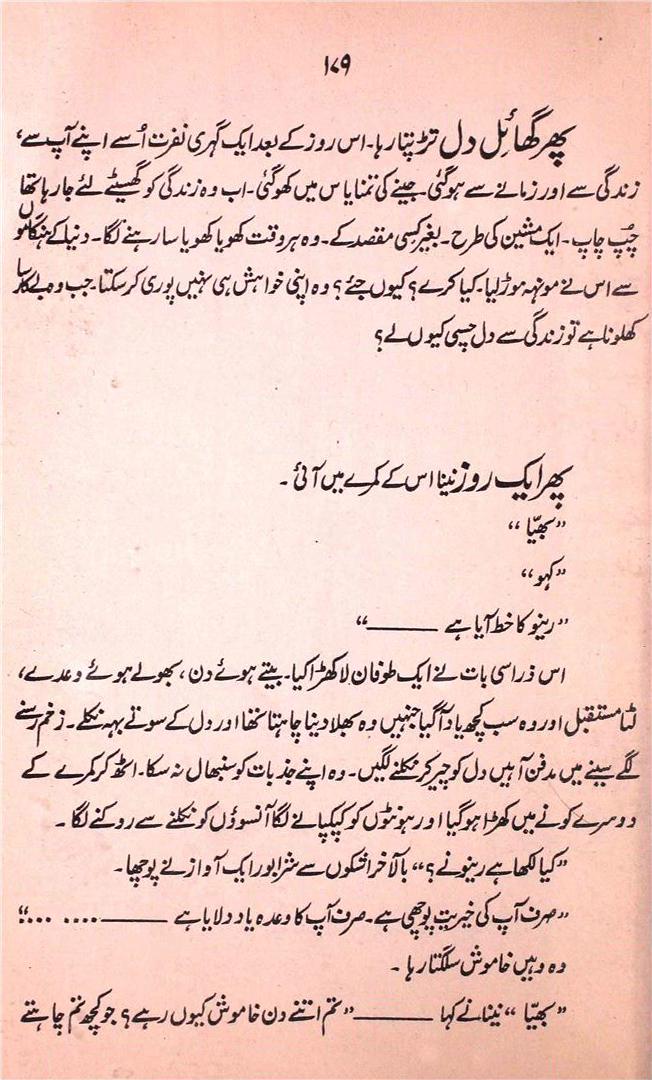 ۱۷۹
پھر گھائل دل تڑپتا رہا۔ اس روز کے بعد ایک گہری نفرت اُسے اپنے آپ سے،
زندگی سے اور زمانے سے ہو گئی۔ جینے کی تمنا یاس میں کھو گئی۔ اب وہ زندگی کو گھسیٹے لئے جا رہا تھا
چپ چاپ۔ ایک مشین کی طرح۔ بغیر کسی مقصد کے۔ وہ ہر وقت کھویا کھویا سا رہنے لگا۔ دنیا کے ہنگاموں
سے اس نے مونہہ موڑ لیا۔ کیا کرے؟ کیوں جئے؟ وہ اپنی خواہش ہی نہیں پوری کر سکتا۔ جب وہ بے کار سا
کھلونا ہے تو زندگی سے دل چسپی کیوں لے؟
پھر ایک روز نینا اس کے کمرے میں آئی۔
”بھیّا“
”کہو“
”رینو کا خط آیا ہے ———“
اس ذرا سی بات نے ایک طوفان لا کھڑا کیا۔ بیتے ہوئے دن، بھولے ہوئے وعدے،
لٹا مستقبل اور وہ سب کچھ یاد آ گیا جنہیں وہ بھلا دینا چاہتا تھا اور دل کے سوتے بہہ نکلے۔ زخم رسنے
لگے سینے میں مدفن آہیں دل کو چیر کر نکلنے لگیں۔ وہ اپنے جذبات کو سنبھال نہ سکا۔ اٹھ کر کمرے کے
دوسرے کونے میں کھڑا ہو گیا اور ہونٹوں کو کپکپانے لگا آنسوؤں کو نکلنے سے روکنے لگا۔
”کیا لکھا ہے رینو نے؟“ بالآخر اشکوں سے شرابور ایک آواز نے پوچھا۔
”صرف آپ کی خیریت پوچھی ہے۔ صرف آپ کا وعدہ یاد دلایا ہے ———.... ...“
وہ وہیں خاموش سلگتا رہا۔
”بھیّا“ نینا نے کہا ——— ”تم اتنے دن خاموش کیوں رہے؟ جو کچھ تم چاہتے